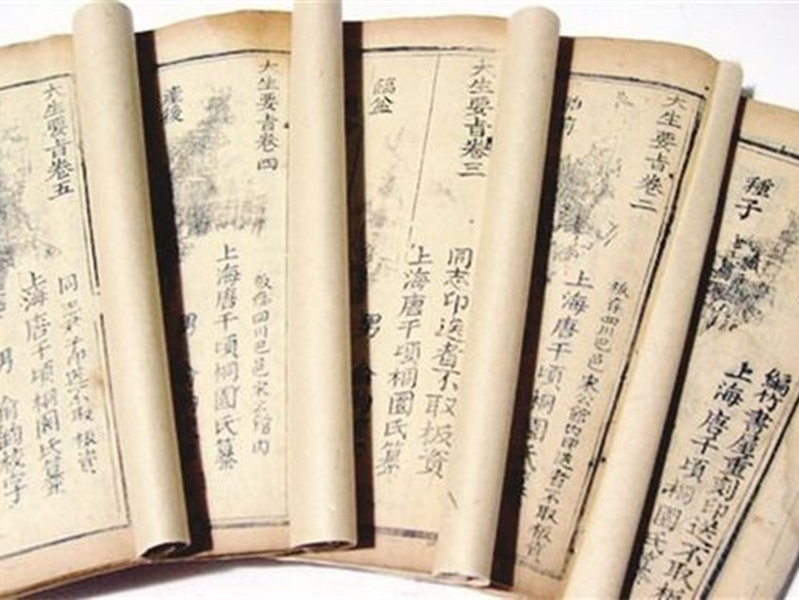 種子
編竹書屋重刻印送不取板
上海唐千頃桐園氏纂
大生要旨卷二
前
板存四川巴邑宋公館內印送者不取板資
上海唐千頃桐園氏
大生要旨卷三
臨盆
同志印送者不取板資
上海唐千頃桐園氏纂
男
大生要旨卷四
產後
板存四川巴邑宋公館內
上海唐千頃桐園氏纂
男
大生要旨卷五
同印送不取板資
上海唐千頃桐園氏纂
男 校字